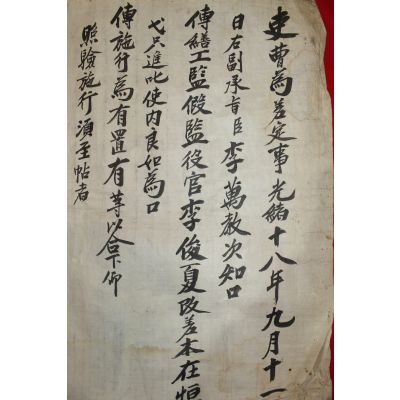 吏曹爲差定事光緖十八年九月十一
日右副承旨臣李萬敎次知口
傳繕工監假監役官李俊夏改差本在恒
戈只進叱使內良如爲口
傳施行爲有置有等以合下仰
照驗施行須至帖者